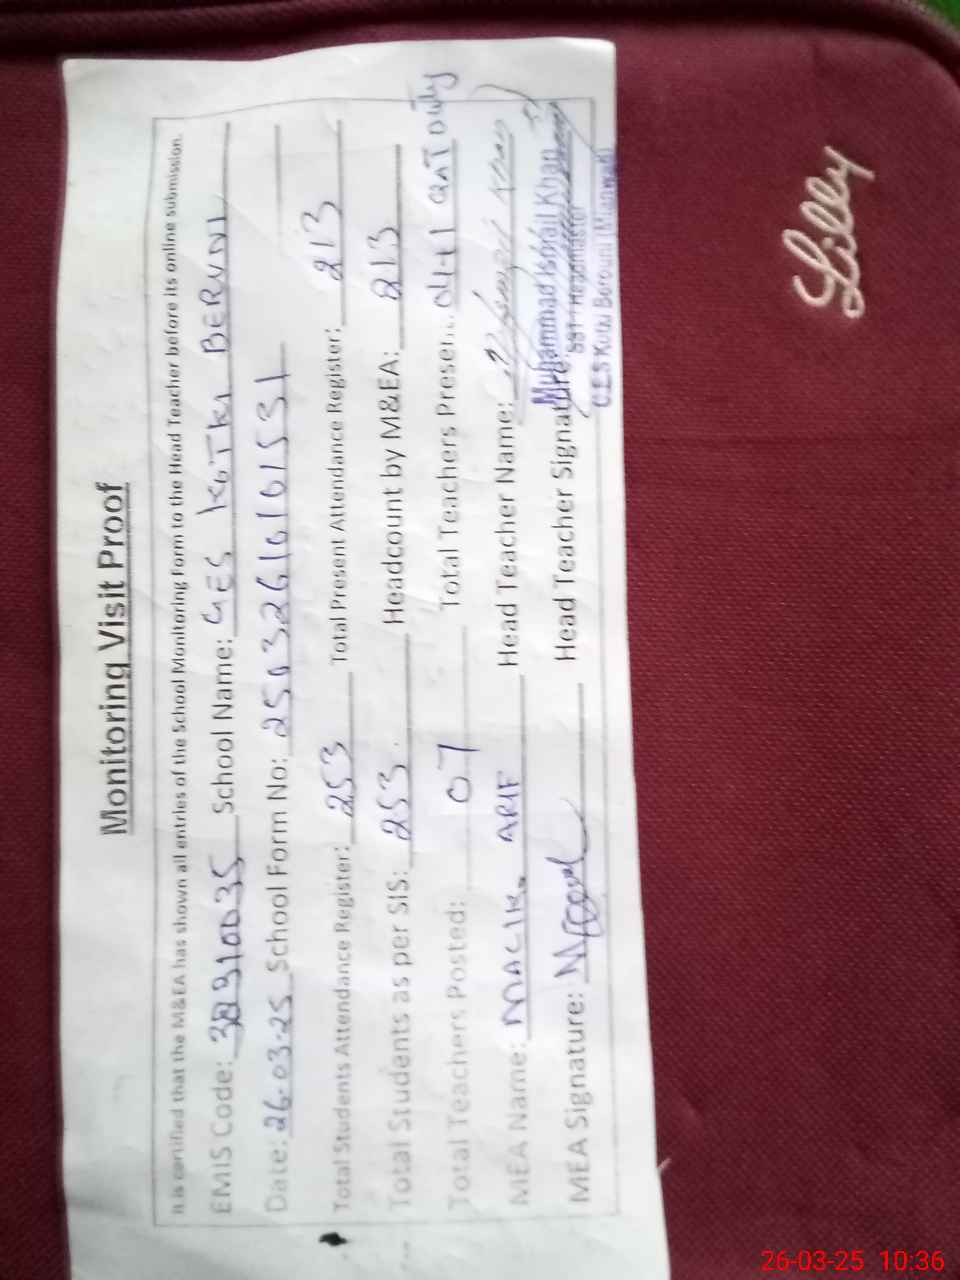 Monitoring Visit Proof
It is certified that the M&EA has shown all entries of the School Monitoring Form to the Head Teacher before its online submission.
EMIS Code: 38310035 School Name: GES KOTKI BERUNI
Date: 26-03-25 School Form No:
Total Students Attendance Register: 253 Total Present Attendance Register: 213
Total Students as per SIS: 253. Headcount by M&EA: 213
Total Teachers Posted: 07 Total Teachers Present: 04+1 on Duty
MEA Name: MALIK ARIF Head Teacher Name:
MEA Signature: Head Teacher Signature:
Muhammad Ismail Khan
SST Headmaster
Lilly
26-03-25 10:36